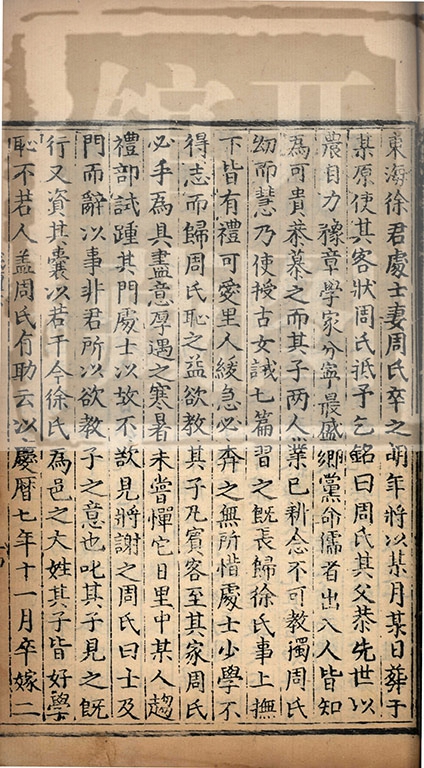 東海徐君處士妻周氏卒之明年將以某月某日葬于
某原使其客狀周氏抵予乞銘曰周氏其父恭先世以
農自力豫章學家分寧最盛鄉黨命儒者出入人皆知
為可貴恭慕之而其子两人業已耕念不可教獨周氏
㓜而慧乃使授古女誡七篇習之既長歸徐氏事上撫
下皆有禮可愛里人緩急必奔之無所惜處士少學不
得志而歸周氏恥之益欲教其子凡賓客至其家周氏
必手為具盡意厚遇之寒暑未嘗憚它日里中某人趨
禮部試踵其門處士以故不欲見將謝之周氏曰士及
門而辭以事非君所以欲教子之意也叱其子見之既
行又資其囊以若干今徐氏為邑之大姓其子皆好學
恥不若人盖周氏有助云以慶曆七年十一月卒嫁二